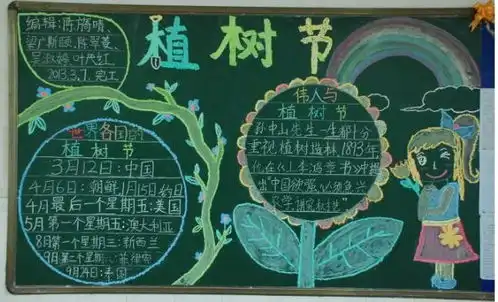 编辑:
2013.3.7. 完工
植树节
世界各国的
植树节
3月12日:中国
4月6日:朝鲜 1月15日:约旦
4月最后一个星期五:美国
5月第一个星期五:澳大利亚
8月第一个星期三:新西兰
9月第二个星期六:菲律宾
9月24日:泰国
伟人与
植树节
孙中山先生一生都十分
重视植树造林 1893年
他在《上李鸿章书》
出"中国欲强 必须急兴
农学 讲究